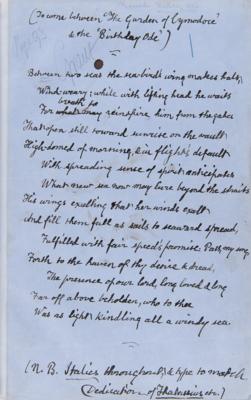 (To come between "The Garden of Cymodoce"
& the "Birthday Ode")
Between two seas the sea-bird's wing makes halt,
Wind-weary; while with lifting head he waits
For breath to reinspire him from the gates
That open still toward sunrise on the vault
High-domed of morning, & in flight's default
With spreading sense of spirit anticipates
What new sea now may lure beyond the straits
His wings exulting that her winds exalt
And fill them full as sails to seaward spread,
Fulfilled with fair speed's promise. Pass, my song,
Forth to the haven of thy desire & dread,
The presence of our lord, long loved & long
Far off above beholden, who to thee
Was as light kindling all a windy sea.
(N.B. Italics throughout, & type to match
Dedication of Thalassius etc.)